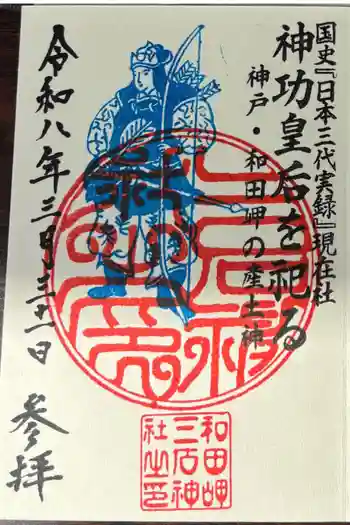 国史『日本三代実録』現在社
神功皇后を祀る
神戸・和田岬の産土神
令和八年三月三十一日
参拝
和田岬
三石神
社之印